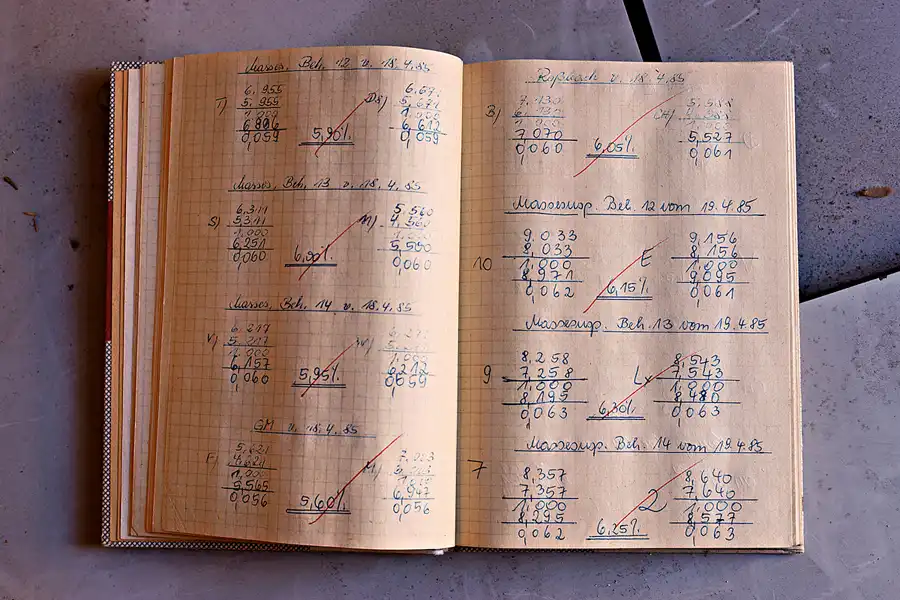 Masses. Beh. 12 v. 18.4.85
6,955 6,671
5,955 5,671
1,000 1,000
6,896 5,90% 6,612
0,059 0,059
Masses. Beh. 13 v. 18.4.85
S) 6,311 5,560
5,311 4,560
1,000 1,000
6,251 6,00% 5,500
0,060 0,060
Masses. Beh. 14 v. 18.4.85
V) 6,217
5,217
1,000 1,000
6,157 5,95% 6,212
0,060 0,059
GM v. 18.4.85
F) 5,621
4,621
1,000
5,565 5,60% 6,947
0,056 0,056
Roßbach v. 18.4.85
B) 7,130 5,588
1,000
7,070 6,05% 5,527
0,060 0,061
Massesusp. Beh. 12 vom 19.4.85
9,033 9,156
8,033 E 8,156
10 1,000 1,000
8,971 6,15% 9,095
0,062 0,061
Massesusp. Beh. 13 vom 19.4.85
8,258 8,543
9 7,258 Lx 7,543
1,000 1,000
8,195 6,30% 8,480
0,063 0,063
Massesusp. Beh. 14 vom 19.4.85
7 8,357 8,640
7,357 2 7,640
1,000 1,000
8,295 6,25% 8,577
0,062 0,063